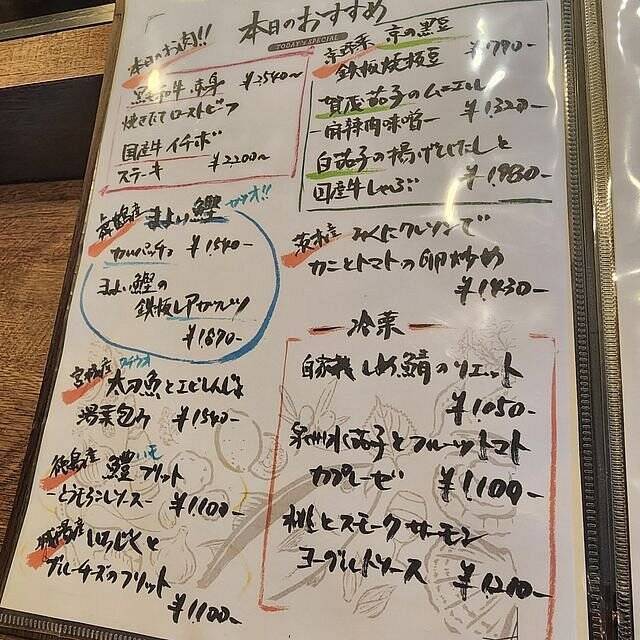 本日のおすすめ
TODAY'S SPECIAL
本日のお肉!!
黒毛和牛 赤身 ¥2,540〜
焼きたてローストビーフ
国産牛 イチボ
ステーキ ¥2200〜
京野菜 京の黒豆
鉄板焼枝豆 ¥790-
賀茂茄子のムニエル ¥1.320-
-麻辣肉味噌-
白茄子の揚げびたしと
国産牛しゃぶ ¥1.980-
まよい鰹 カツオ!!
カルパッチョ ¥1.540-
まよい鰹の
鉄板レアカツレツ
¥1870-
茨木産 みくにクレソンで
カニとトマトの卵炒め
¥1.430-
タチウオ
太刀魚とエビしんじょ
湯葉包み ¥1540-
徳島産 鱧 ハモ フリット
-とうもろこしソース- ¥1100-
城陽産 いちじくと
ブルーチーズのフリット
¥1.100-
冷菜
自家製 しめ鯖のリエット
¥1050-
泉州水茄子とフルーツトマト
カプレーゼ ¥1.100-
桃とスモークサーモン
ヨーグルトソース ¥1210-